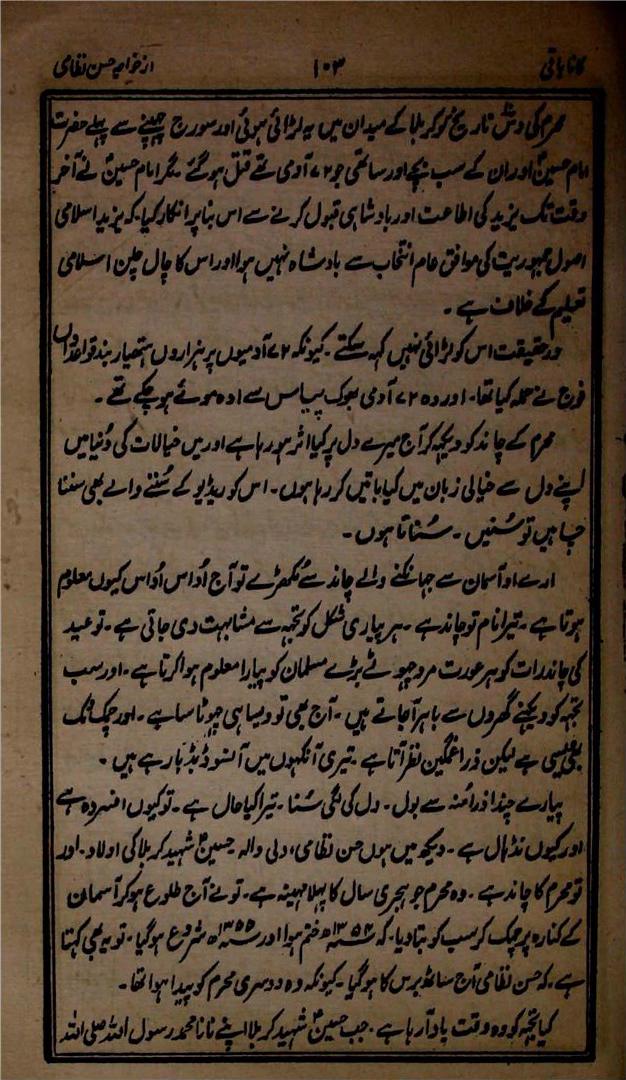 کانا باتی ۱۰۳ از خواجہ حسن نظامی
محرم کی دس تاریخ کو کربلا کے میدان میں یہ لڑائی ہوئی اور سورج چھپنے سے پہلے حضرت
امام حسینؑ اور ان کے سب بچے اور ساتھی جو ۷۲ آدمی تھے قتل ہو گئے۔ مگر امام حسینؑ نے آخر
وقت تک یزید کی اطاعت اور بادشاہی قبول کرنے سے اس بنا پر انکار کیا۔ کہ یزید اسلامی
اصول جمہوریت کی موافق عام انتخاب سے بادشاہ نہیں ہوا اور اس کا چال چلن اسلامی
تعلیم کے خلاف ہے۔
درحقیقت اس کو لڑائی نہیں کہہ سکتے۔ کیونکہ ۷۲ آدمیوں پر ہزاروں ہتھیار بند قواعد داں
فوج نے حملہ کیا تھا۔ اور وہ ۷۲ آدمی بھوک پیاس سے ادہ موئے ہو چکے تھے۔
محرم کے چاند کو دیکھ کر آج میرے دل پر کیا اثر ہو رہا ہے اور میں خیالات کی دُنیا میں
اپنے دل سے خیالی زبان میں کیا باتیں کر رہا ہوں۔ اس کو ریڈیو کے سُننے والے بھی سننا
چاہیں تو سُنیں۔ سُناتا ہوں۔
ارے او آسمان سے جھانکنے والے چاند سے مُکھڑے تو آج اُداس اُداس کیوں معلوم
ہوتا ہے۔ تیرا نام تو چاند ہے۔ ہر پیاری شکل کو تجہہ سے مشابہت دی جاتی ہے۔ تو عید
کی چاند رات کو ہر عورت مرد چھوٹے بڑے مسلمان کو پیارا معلوم ہوا کرتا ہے۔ اور سب
تجہہ کو دیکھنے گھروں سے باہر آ جاتے ہیں۔ آج بھی تو ویسا ہی چھوٹا سا ہے۔ اور چمک دمک
بھی ویسی ہے لیکن ذرا غمگین نظر آتا ہے۔ تیری آنکہوں میں آنسو ڈبڈبا رہے ہیں۔
پیارے چندا ذرا مُنہ سے بول۔ دل کی لگی سُنا۔ تیرا کیا حال ہے۔ تو کیوں افسردہ ہے
اور کیوں نڈہال ہے۔ دیکھ میں ہوں حسن نظامی، دلی والہ حسینؑ شہید کربلا کی اولاد۔ اور
تو محرم کا چاند ہے۔ وہ محرم جو ہجری سال کا پہلا مہینہ ہے۔ تو نے آج طلوع ہو کر آسمان
کے کنارہ پر چمک کر سب کو بتا دیا۔ کہ ۱۳۵۴ھ ختم ہوا اور ۱۳۵۵ھ شروع ہو گیا۔ تو یہ بھی کہتا
ہے۔ کہ حسن نظامی آج ساٹھ برس کا ہو گیا۔ کیونکہ وہ دوسری محرم کو پیدا ہوا تھا۔
کیا تجہہ کو وہ وقت یاد آ رہا ہے۔ جب حسینؑ شہید کربلا اپنے نانا محمد رسول اللہ صلی اللہ